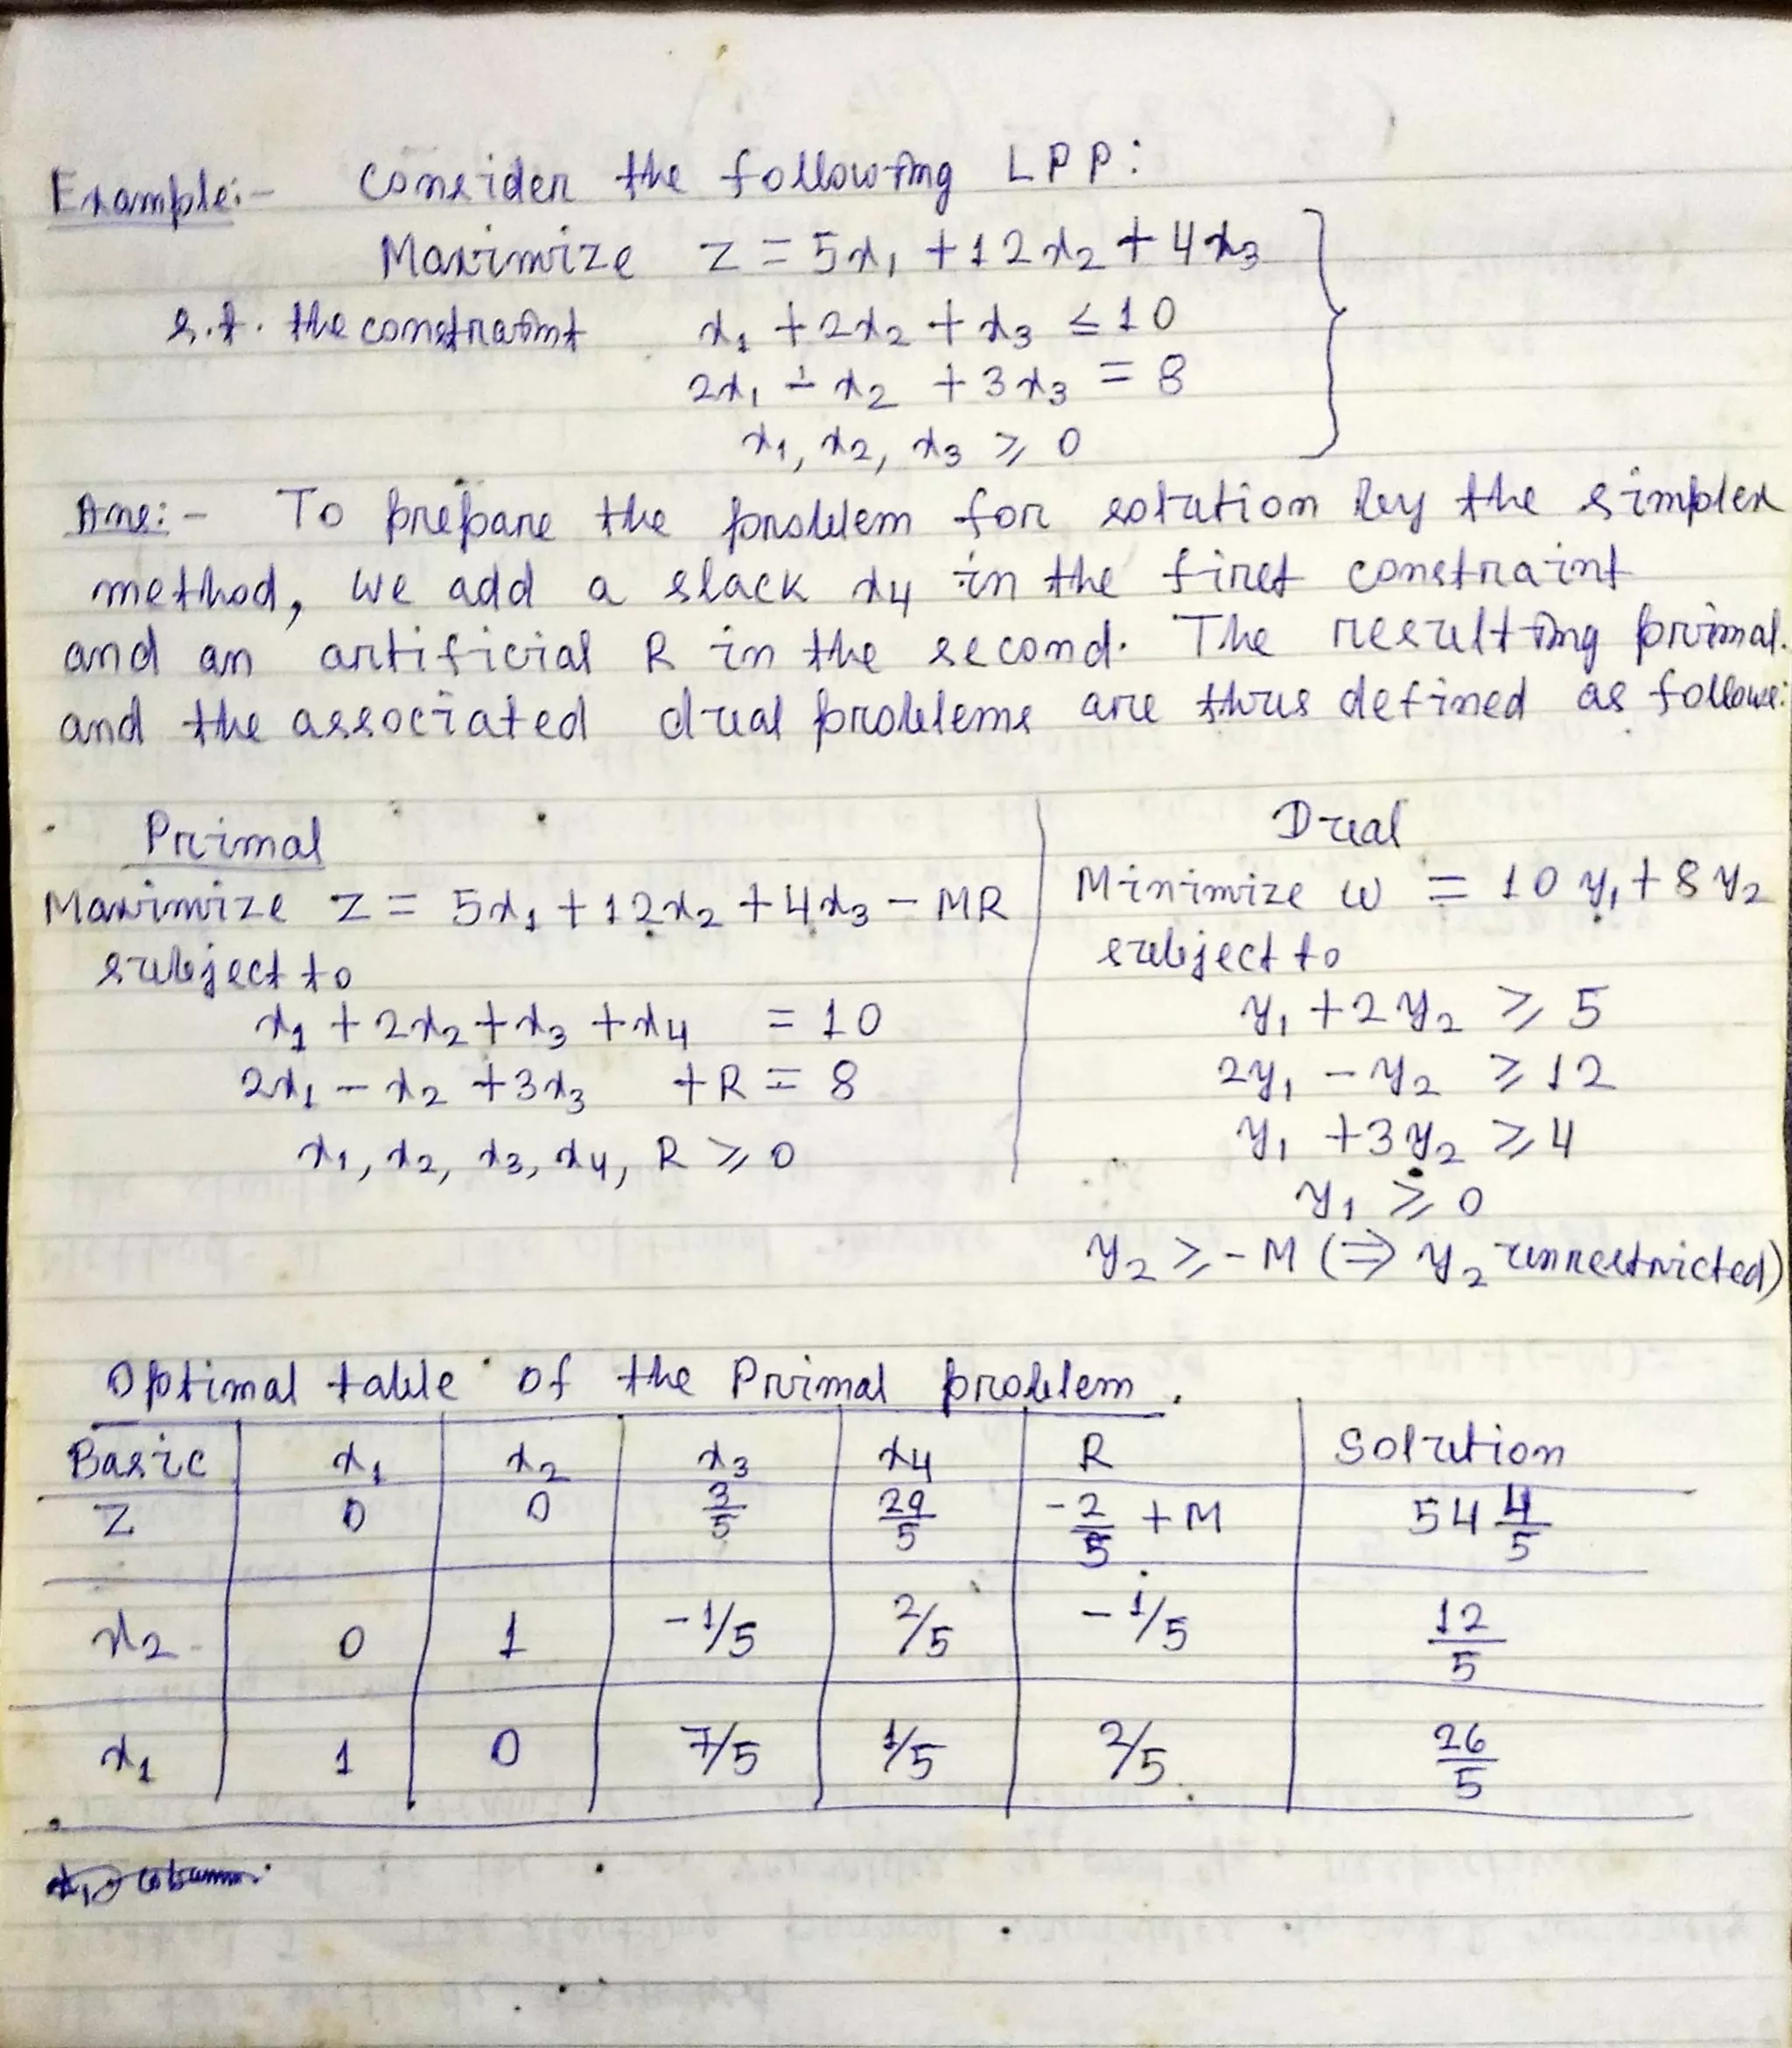 Example:- Consider the following LPP:
Maximize Z = 5x₁ + 12x₂ + 4x₃
s.t. the constraint x₁ + 2x₂ + x₃ ≤ 10
2x₁ - x₂ + 3x₃ = 8
x₁, x₂, x₃ ≥ 0
Ans:- To prepare the problem for solution by the simplex
method, we add a slack x₄ in the first constraint
and an artificial R in the second. The resulting primal.
and the associated dual problems are thus defined as follows:
Primal
Maximize Z = 5x₁ + 12x₂ + 4x₃ - MR
subject to
x₁ + 2x₂ + x₃ + x₄ = 10
2x₁ - x₂ + 3x₃ + R = 8
x₁, x₂, x₃, x₄, R ≥ 0
Dual
Minimize w = 10y₁ + 8y₂
subject to
y₁ + 2y₂ ≥ 5
2y₁ - y₂ ≥ 12
y₁ + 3y₂ ≥ 4
y₁ ≥ 0
y₂ ≥ -M (⇒ y₂ unrestricted)
Optimal table of the Primal problem.
Basic x₁ x₂ x₃ x₄ R Solution
Z 0 0 3/5 29/5 -2/5 + M 54 4/5
x₂ 0 1 -1/5 2/5 -1/5 12/5
x₁ 1 0 7/5 1/5 2/5 26/5